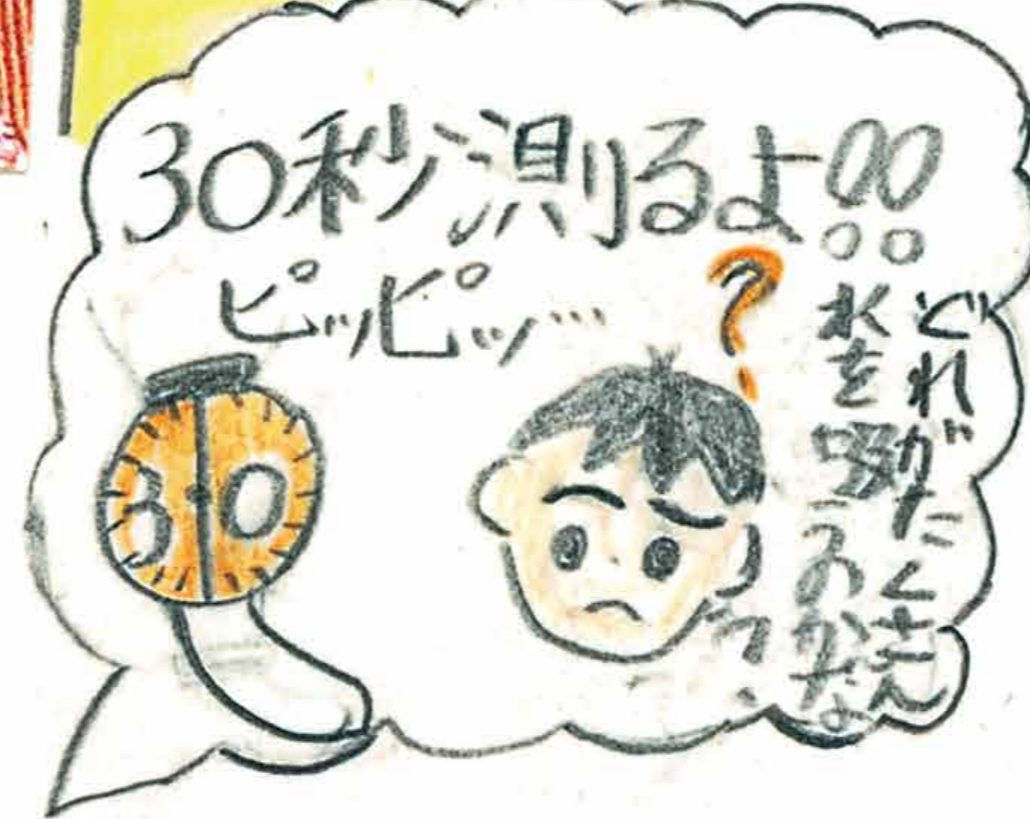 30秒測るよ!!
ピッピッ…
?
どれがたくさん
水を吸うのかな
30